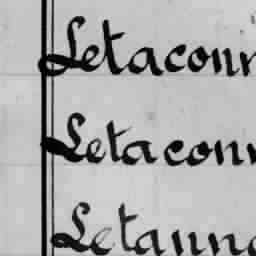 Letaconn
Letaconn
Letanna